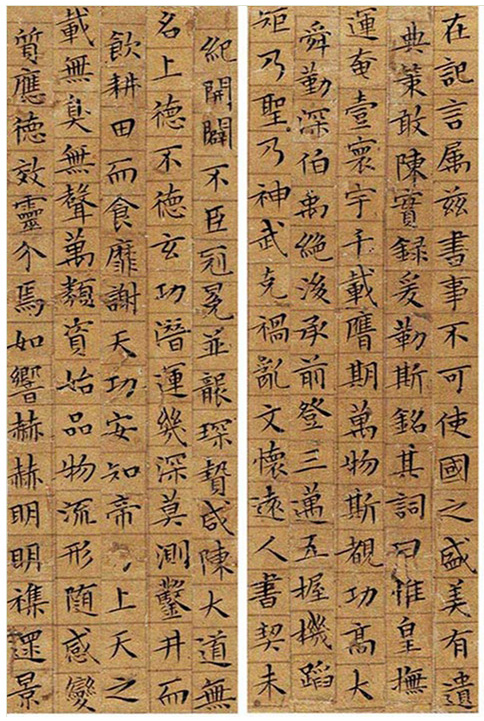 在記言属兹書事不可使國之盛美有遺
典策敢陳實録爰勒斯銘其詞曰惟皇撫
運奄壹寰宇千載膺期萬物斯覩功髙大
舜勤深伯禹絶後承前登三邁五握機蹈
矩乃聖乃神武克禍亂文懷遠人書契未
紀開闢不臣冠冕並襲琛贄咸陳大道無
名上德不德玄功潛運幾深莫測鑿井而
飲耕田而食靡謝天功安知帝上天之
載無臭無聲萬類資始品物流形随感變
質應德效靈介焉如響赫赫明明襍遝景